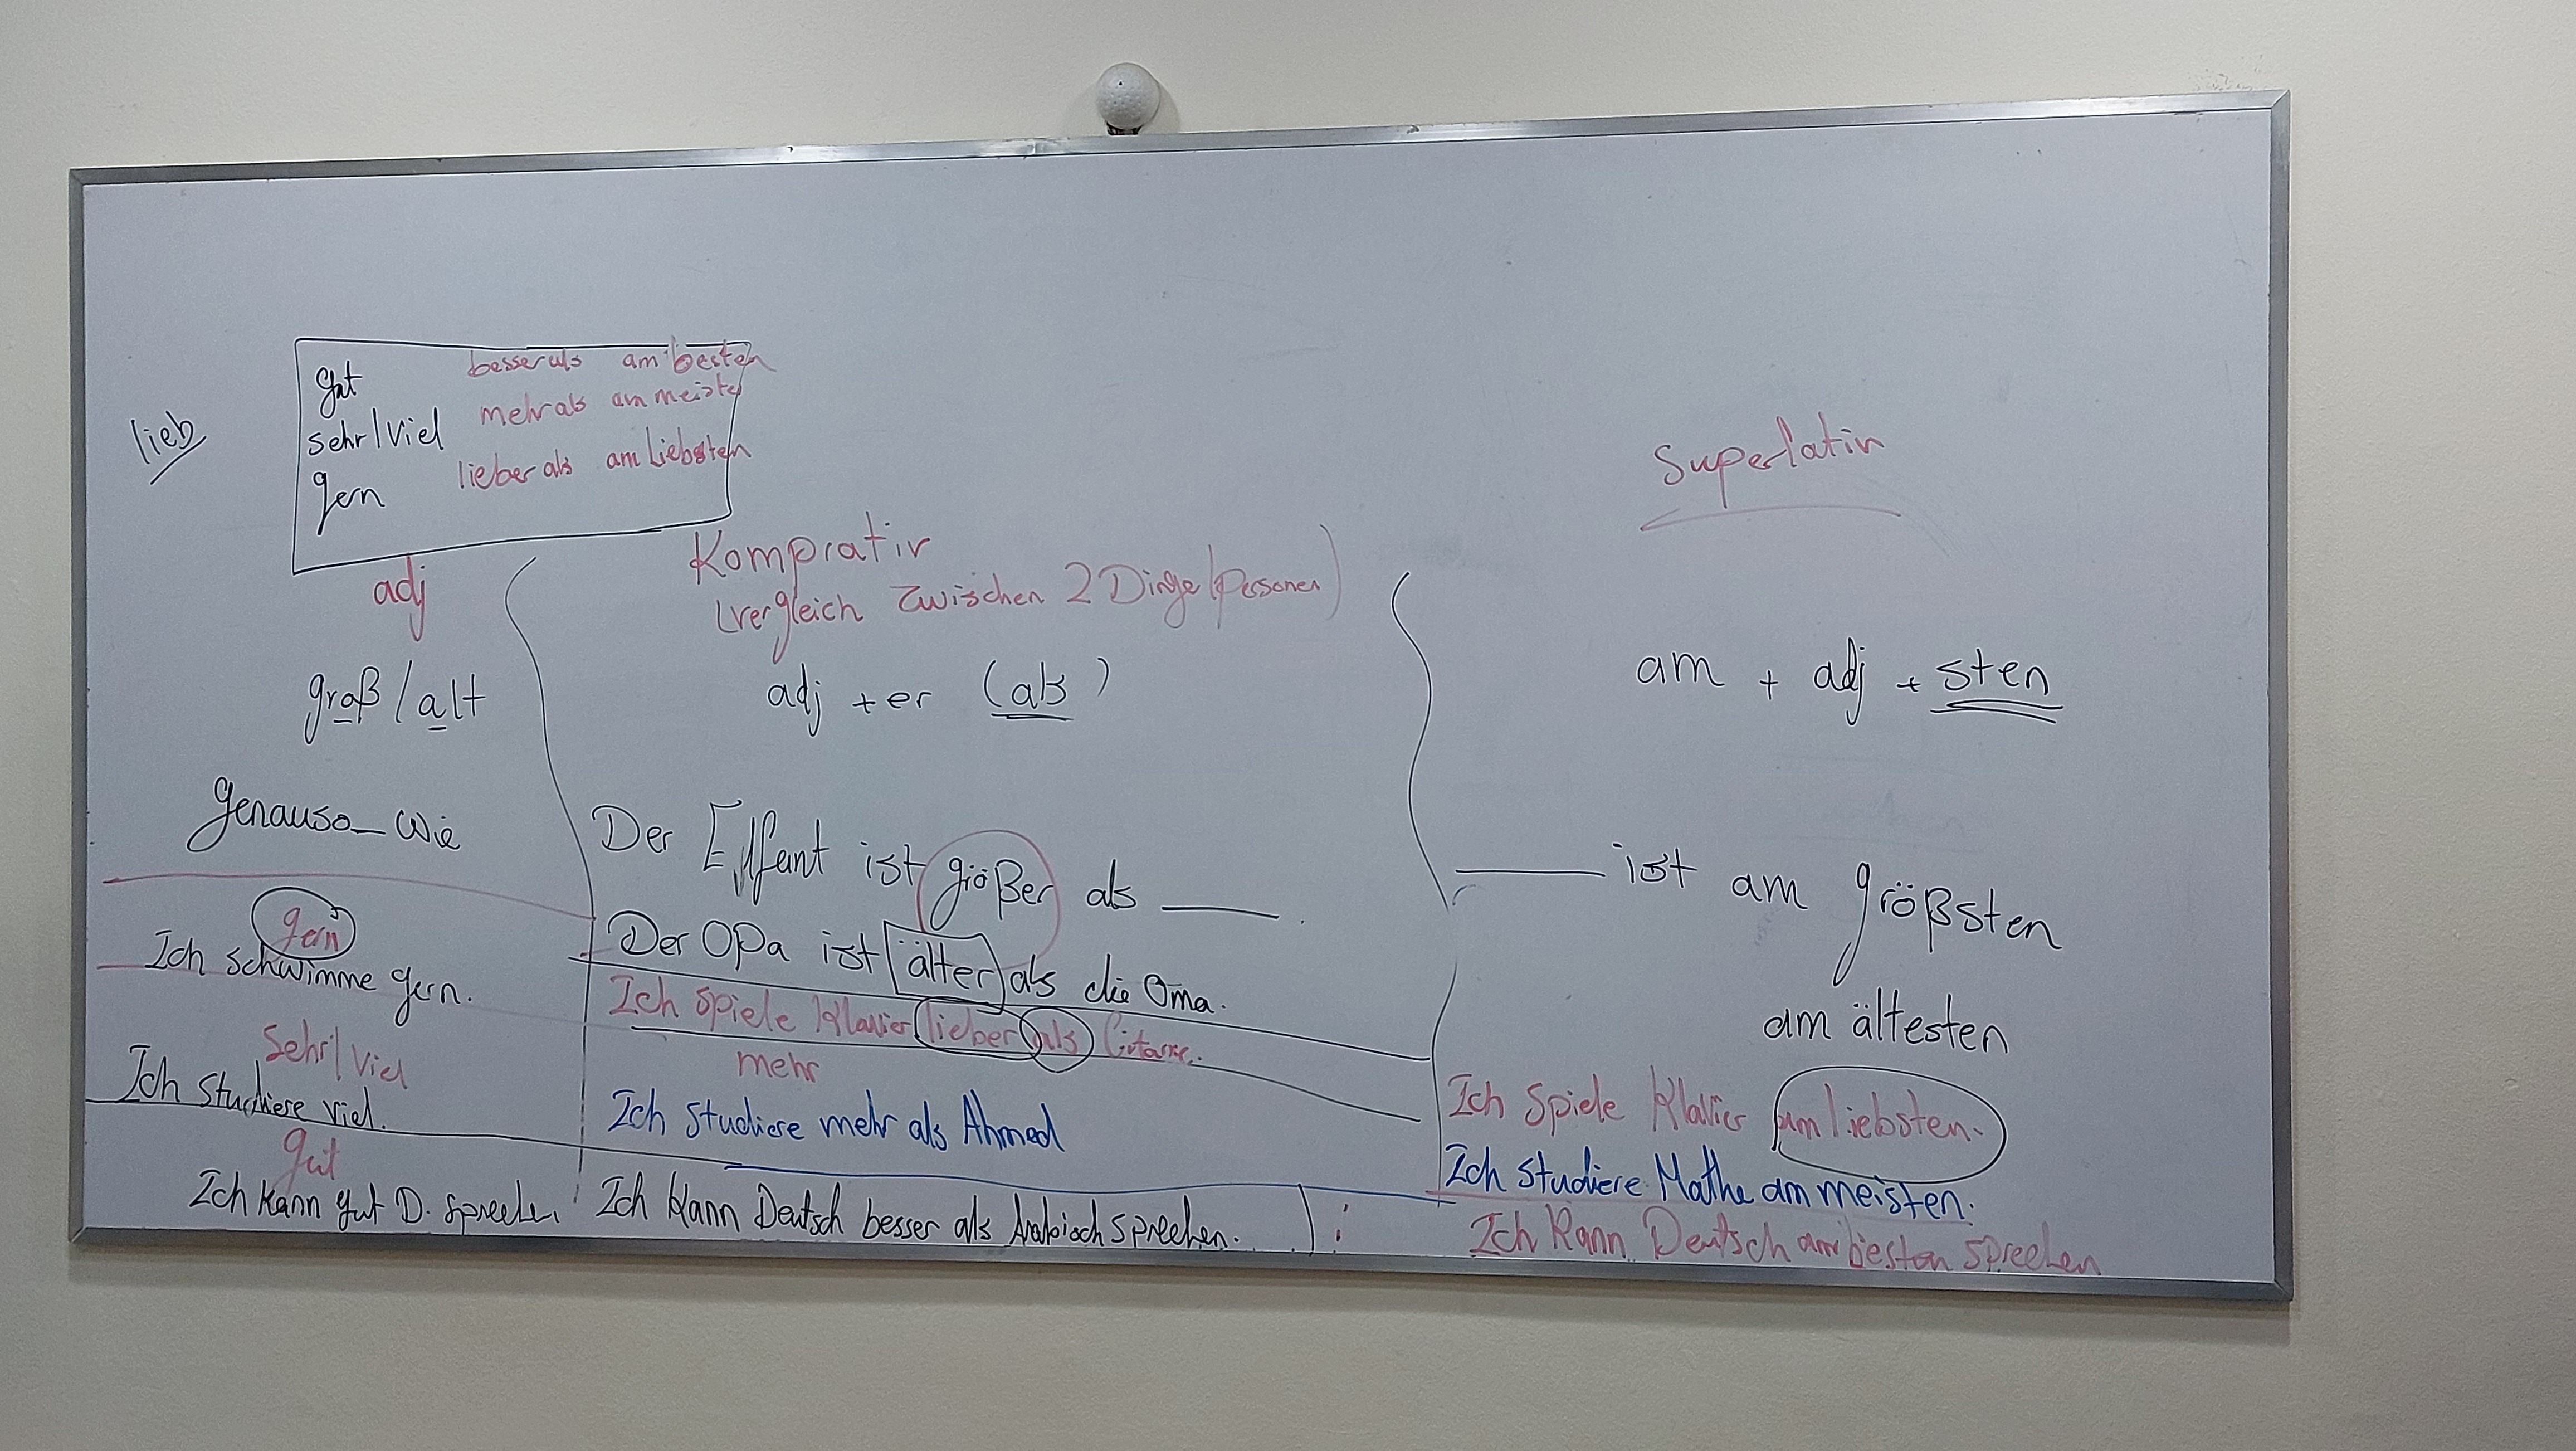 lieb
gut besser als am besten
sehr/viel mehr als am meisten
gern lieber als am liebsten
adj
groß/alt
genauso_wie
gern
Ich schwimme gern.
Sehr/Viel
Ich studiere viel.
gut
Ich kann gut D. sprechen
Komprativ
(vergleich zwischen 2 Dinge/Personen)
adj +er (als)
Der Elfant ist größer als ____.
Der Opa ist älter als die Oma.
Ich spiele Klavier lieber als Gitarre.
mehr
Ich studiere mehr als Ahmed
Ich kann Deutsch besser als Arabisch sprechen.
Superlativ
am + adj + sten
____ ist am größsten
am ältesten
Ich spiele Klavier am liebsten.
Ich studiere Mathe am meisten.
Ich kann Deutsch am besten sprechen